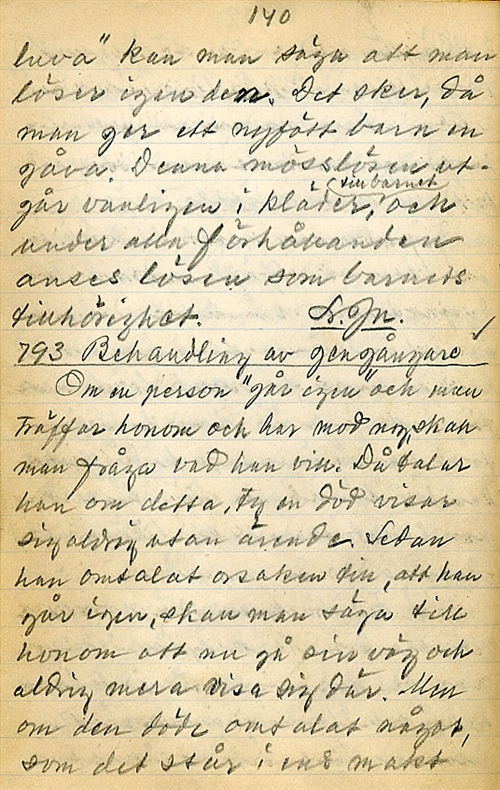 140
luva" kan man säga att man
löser igen den. Det sker, då
man ger ett nyfött barn en
gåva. Denna mösslösen ut-
till barnet
går vanligen i kläder, och
under alla förhållanden
anses lösen som barnets
tillhörighet. Lr. Jn.
793 Behandling av gengångare
Om en person "går igen" och man
träffar honom och har mod nog, skall
man fråga vad han vill. Då talar
han om detta, ty en död visar
sig aldrig utan ärende. Sedan
han omtalat orsaken till, att han
går igen, skall man säga till
honom att nu gå sin väg och
aldrig mera visa sig där. Men
om den döde omtalat något,
som det står i ens makt